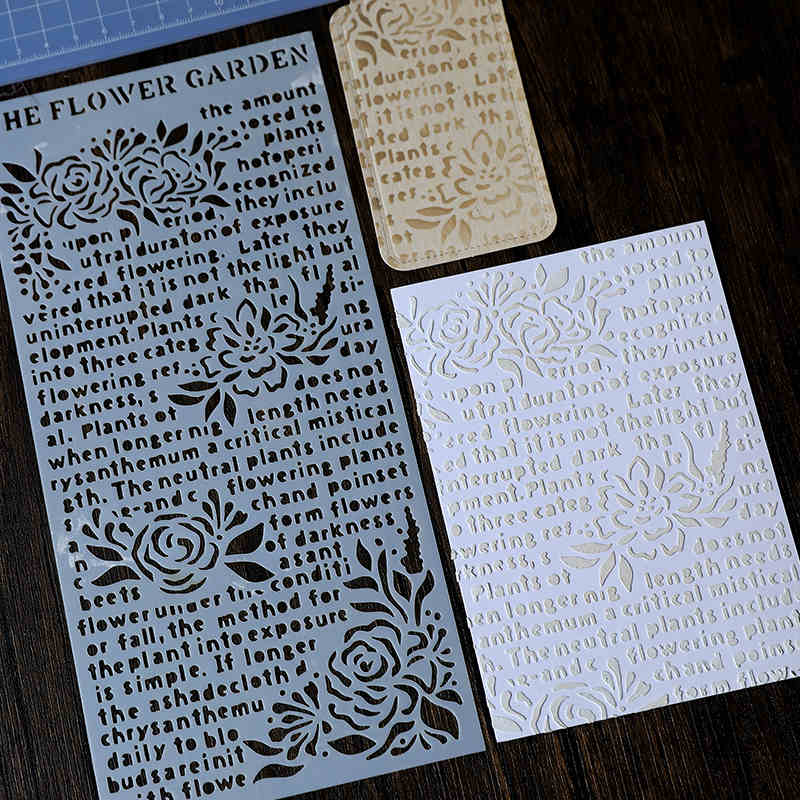 HE FLOWER GARDEN
the amount
osed to
plants
hotoperi
ecognized
eriod, they inclu
upon p
utral duraton of exposure
ered flowering. Later they
vered that it is not the light but
uninterrupted dark tha fl al
elopment. Plants le si-
into three categ ura
flowering ref ng
darkness, s day
al. Plants ot does not
when longer nig length needs
rysanthemum a critical mistical
gth. The neutral plants include
s e-and c flowering plants
a chand poinset
n form flowers
c of darkness,
beets asant
flower under the conditi
or fall, the method for
the plant into exposure
is simple. If longer
the ashadecloth d
chrysanthemu
daily to blo
buds are init
ith flowe
the
eriod
duraton of e
flowering. Late
it is not the
ted dark tha
Plants
categ
ref
ot
the amount
osed to
plants
hotoperi
ecognized
upon p eriod, they inclu
utral duraton of exposure
ered flowering. Later they
ed that it is not the light but
nterrupted dark tha fl al
pment. Plants le si-
o three categ ng
owering ref ura
day
Plants ot does not
en longer nig length needs
anthemum a critical mistical
h. The neutral plants includ
e-and c flowering plan
chand poins
form flow